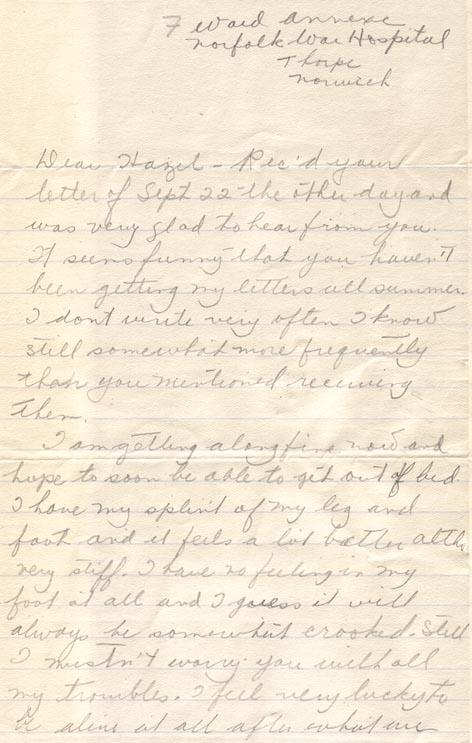 7 ward annexe
Norfolk War Hospital
Thorpe
Norwich
Dear Hazel - Rec'd your
letter of Sept 22 the other day and
was very glad to hear from you.
It seems funny that you haven't
been getting my letters all summer.
I don't write very often I know
still somewhat more frequently
than you mentioned receiving
them.
I am getting along fine now and
hope to soon be able to get out of bed.
I have my splint of my leg and
foot and it feels a lot better altho
very stiff. I have no feeling in my
foot at all and I guess it will
always be somewhat crooked. Still
I mustn't worry you with all
my troubles. I feel very lucky to
be alive at all after what we